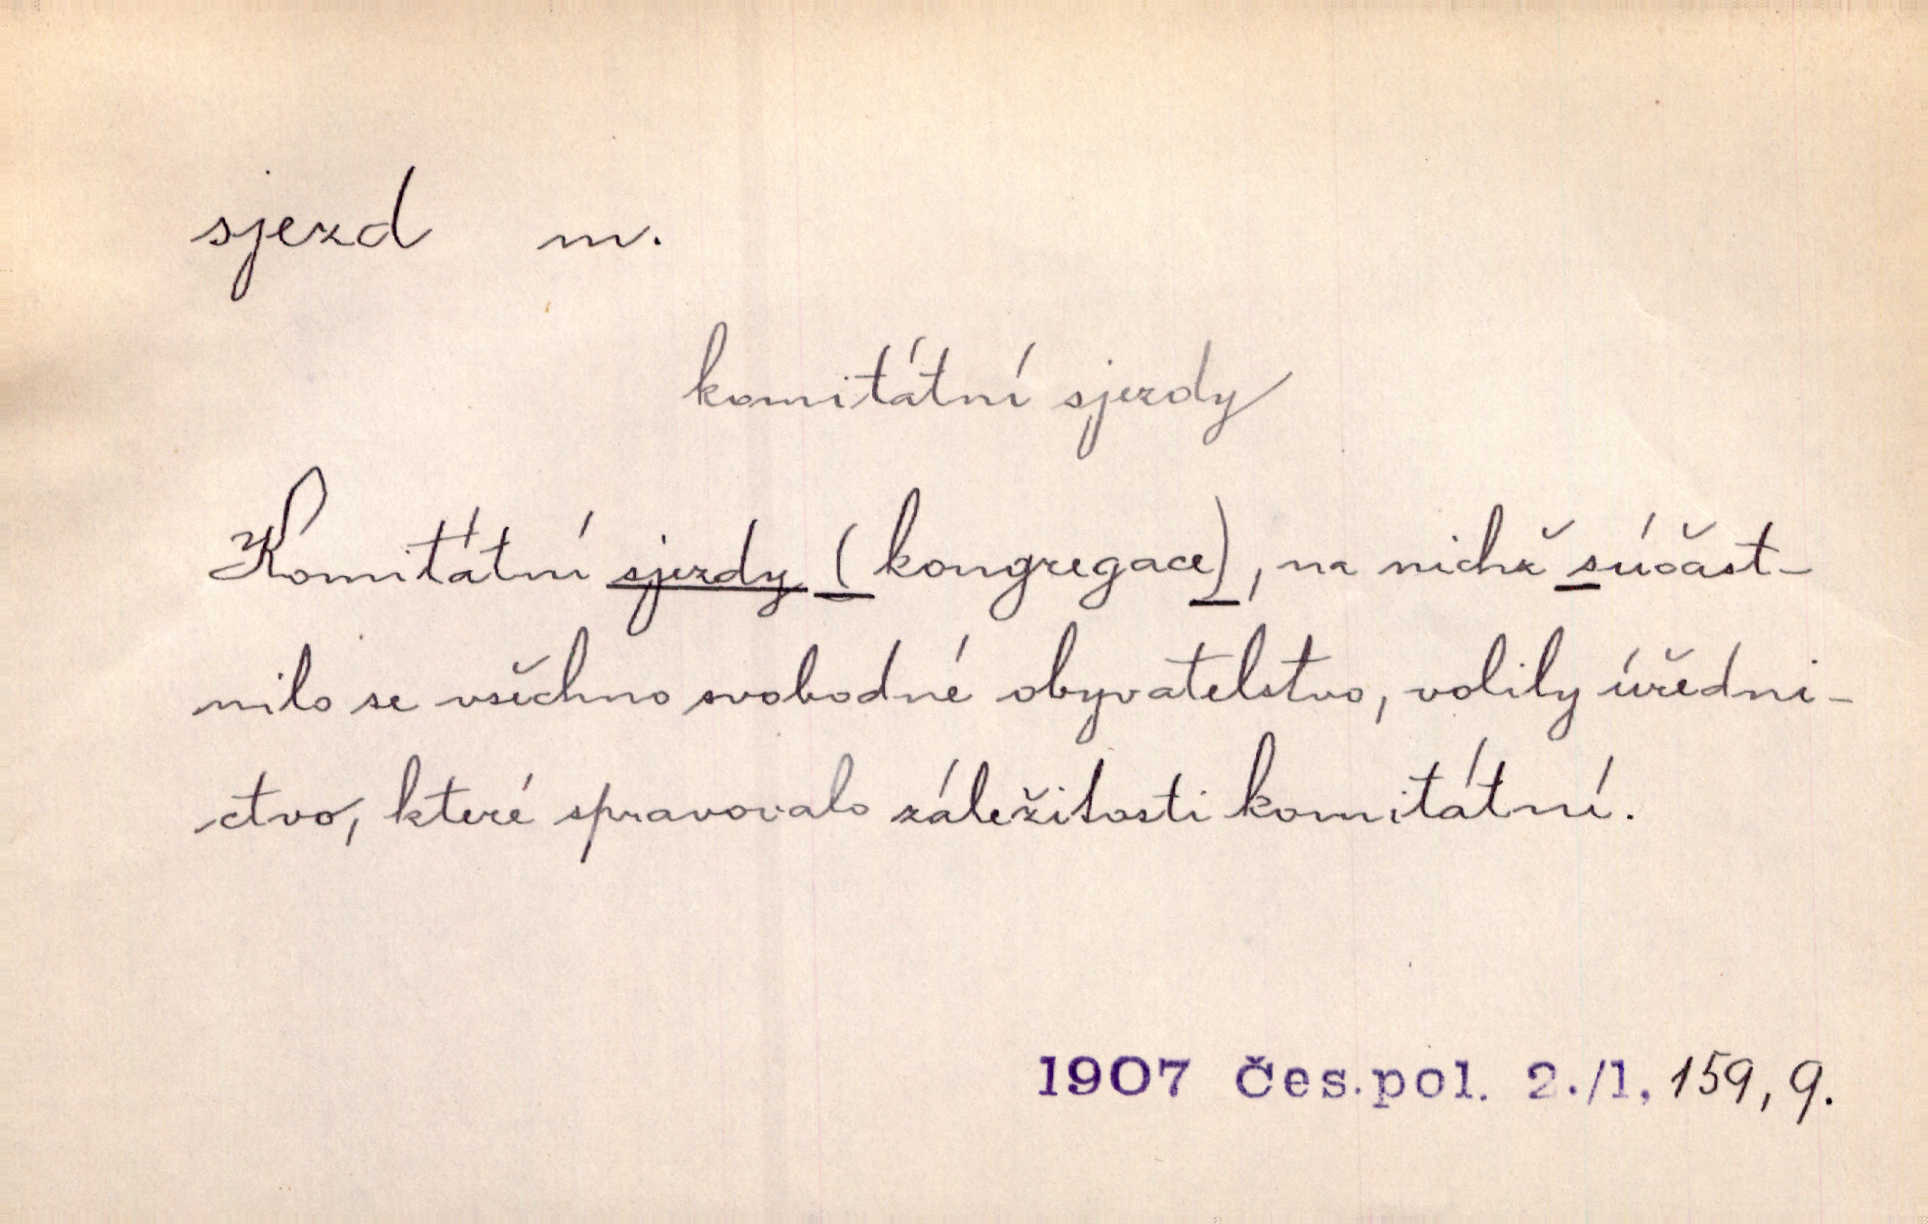 sjezd m.
komitátní sjezdy
Komitátní sjezdy (kongregace), na nichž súčast-
nilo se všechno svobodné obyvatelstvo, volily úředni-
ctvo, které spravovalo záležitosti komitátní.
1907 Čes.pol. 2./1, 159, 9.